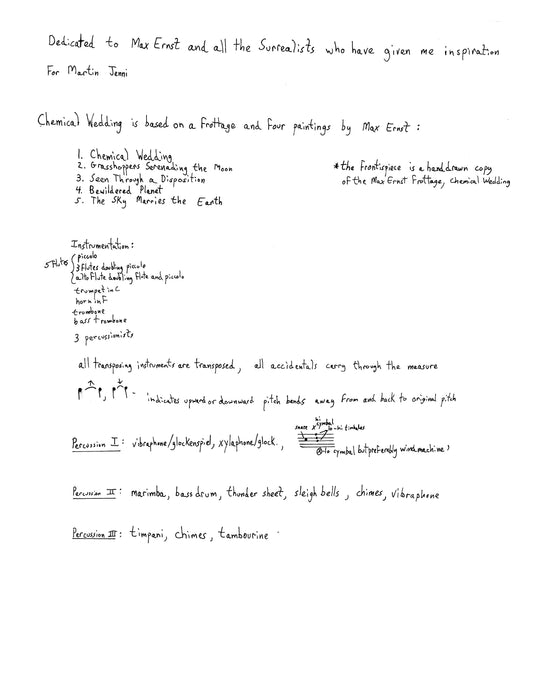 Dedicated to Max Ernst and all the Surrealists who have given me inspiration
For Martin Jenni
Chemical Wedding is based on a Frottage and four paintings by Max Ernst :
1. Chemical Wedding
2. Grasshoppers Serenading the Moon
3. Seen Through a Disposition
4. Bewildered Planet
5. The Sky Marries the Earth
*the frontispiece is a hand drawn copy
of the Max Ernst Frottage, Chemical Wedding
Instrumentation:
5 flutes
piccolo
3 flutes doubling piccolo
alto flute doubling flute and piccolo
trumpet in C
horn in F
trombone
bass trombone
3 percussionists
all transposing instruments are transposed, all accidentals carry through the measure
- indicates upward or downward pitch bends away from and back to original pitch
Percussion I: vibraphone/glockenspiel, xylaphone/glock.,
snare
hi cymbal
lo-hi timbales
lo cymbal but preferedly wind machine
Percussion II: marimba, bass drum, thunder sheet, sleigh bells, chimes, vibraphone
Percussion III: timpani, chimes, tambourine